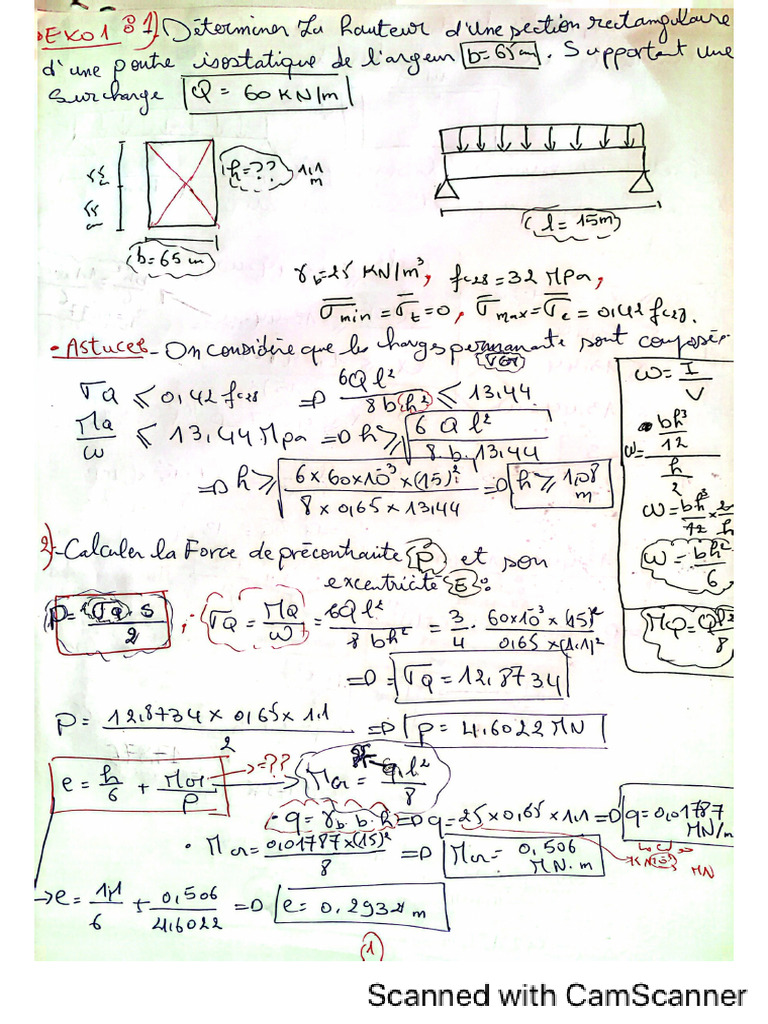 EXO1 : 1) Déterminer La hauteur d'une section rectangulaire
d'une poutre isostatique de l'argeur b=65cm. Supportant une
surcharge Q = 60 KN/m
h=?? 1,1 m
b=65 cm
l=15m
γb=25 KN/m³, fc28=32 MPa,
σ̄min = σ̄t=0, σ̄max=σ̄c = 0,42 fc28.
• Astuces - On considère que les charges permanante sont composée
σQ ≤ 0,42 fc28 ⇒ 6Q l² / 8 b h² ≤ 13,44
MQ / ω ≤ 13,44 MPa ⇒ h ≥ √(6 Q l² / 8.b.13,44)
⇒ h ≥ √(6×60×10⁻³×(15)² / 8×0,65×13,44) ⇒ h ≥ 1,08 m
ω = I / V
ω = (bh³/12) / (h/2)
ω = bh³/12 × 2/h
ω = bh²/6
MQ = Q l²/8
2) - Calculer la Force de précontrainte {P} et son
excentricité {E} :
P = σQ . S / 2 ; σQ = MQ/ω = 6Q l² / 8 bh² = 3/4 . 60×10⁻³×(15)² / 0,65×(1,1)²
⇒ σQ = 12,8734
P = 12,8734 × 0,65 × 1,1 / 2 ⇒ P = 4,6022 MN
e = h/6 + MG/P → =?? → MG = q.l²/8
• q = γb. b. h ⇒ q = 25×0,65×1,1 ⇒ q = 0,01787 MN/m
• MG = 0,01787×(15)² / 8 ⇒ MG = 0,506 MN.m
KN 10⁻³ MN
→ e = 1,1/6 + 0,506/4,6022 ⇒ e = 0,2932 m
1
Scanned with CamScanner